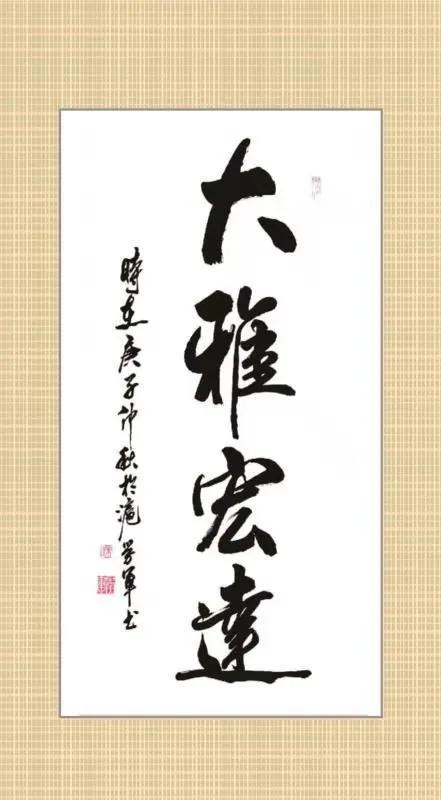 大雅宏達
時在庚子仲秋於滬學軍书